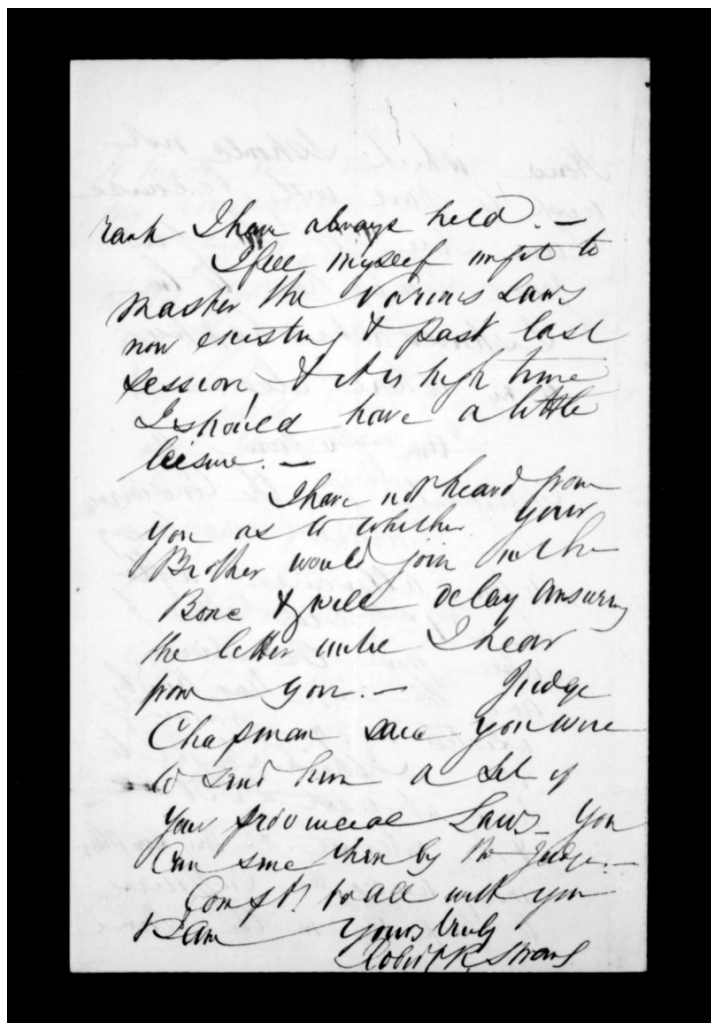 rank I have always held. —
I feel myself unfit to
master the various Laws
now existing & past last
session, & it is high time
I should have a little
leisure. —
I have not heard from
you as to whether your
Brother would join in the
Bone & will delay answering
the letter until I hear
from you. — Judge
Chapman said you were
to send him a set of
your provincial Laws — You
can send them by the Judge. —
Compts. to all with you
I am Yours truly
Robert R. Strang